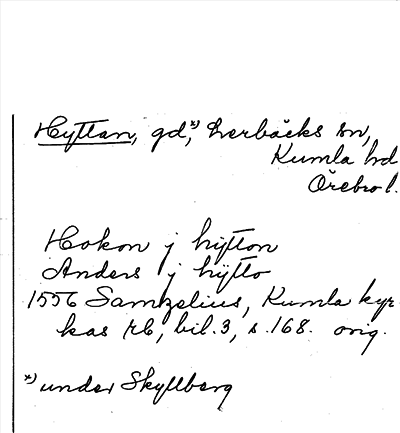 Hyttan, gd,*) Lerbäcks sn,
Kumla hd
Örebro l.
Hokon j hytton
Anders j hÿtto
1556 Samzelius, Kumla kyr-
kas rb, bil. 3, s. 168. orig.
*) under Skyllberg